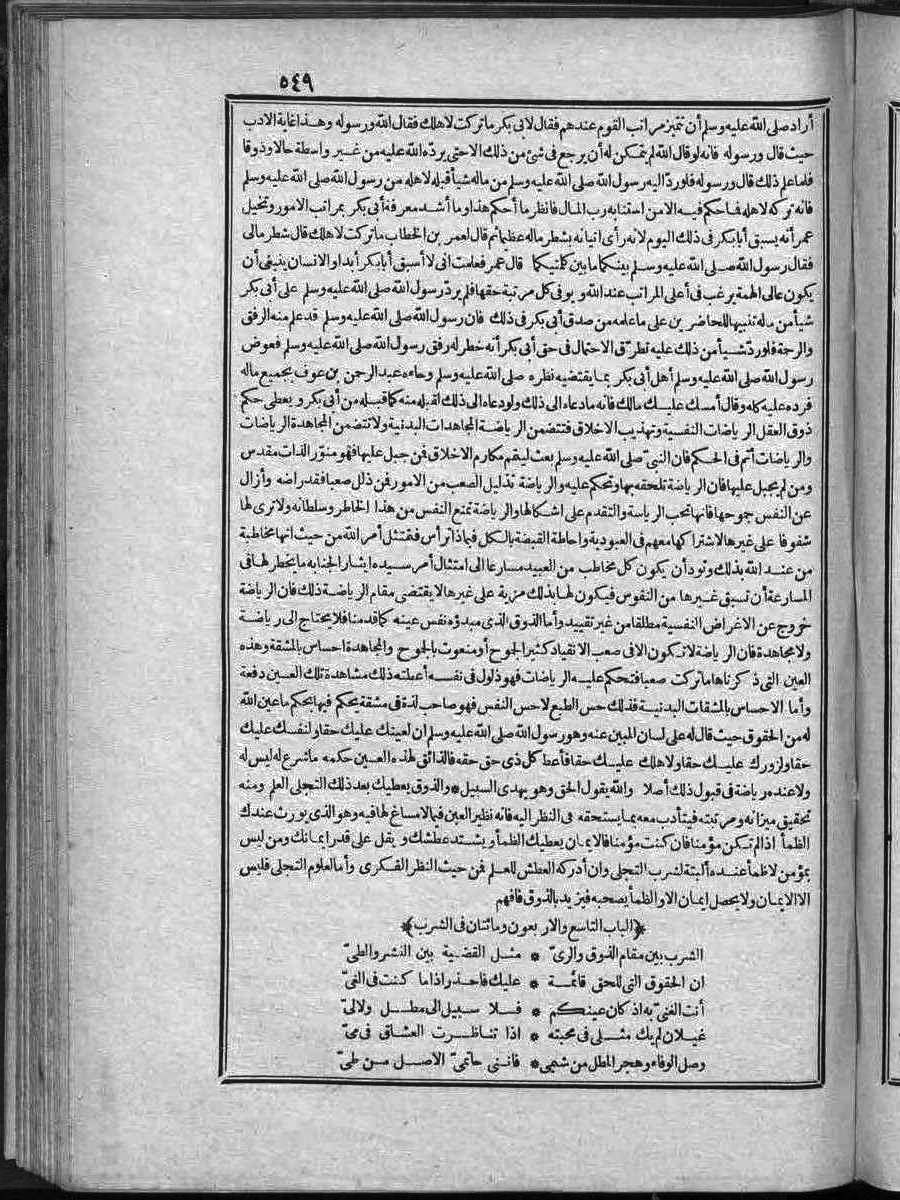 ٥٤٩
أراد صلى الله عليه وسلم أن تتميز مراتب القوم عندهم فقال لابى بكر ما تركت لاهلك فقال الله ورسوله وهذا غاية الادب
حيث قال ورسوله فانه لو قال الله لم يتمكن له أن يرجع فى شئ من ذلك الاحتى يردّه الله عليه من غير واسطة حالا وذوقا
فلما علم ذلك قال ورسوله فلو ردّ اليه رسول الله صلى الله عليه وسلم من ماله شيأ قبله لاهله من رسول الله صلى الله عليه وسلم
فانه تركه لاهله فما حكم فيه الا من استنابه رب المال فانظر ما أحكم هذا وما أشد معرفة أبى بكر بمراتب الامور وتخيل
عمر أنه يسبق أبا بكر فى ذلك اليوم لانه رأى اتيانه بشطر ماله عظيما ثم قال لعمر بن الخطاب ما تركت لاهلك قال شطر مالى
فقال رسول الله صلى الله عليه وسلم بينكما ما بين كلمتيكما قال عمر فعلمت انى لا أسبق أبا بكر أبدا والانسان ينبغى أن
يكون عالى الهمة يرغب فى أعلى المراتب عند الله ويوفى كل مرتبة حقها فلم يردّ رسول الله صلى الله عليه وسلم على أبى بكر
شيأ من ماله تنبيها للحاضرين على ما علمه من صدق أبى بكر فى ذلك فان رسول الله صلى الله عليه وسلم قد علم منه الرفق
والرحمة فلو ردّ شيأ من ذلك عليه تطرّق الاحتمال فى حق أبى بكر أنه خطر له رفق رسول الله صلى الله عليه وسلم فعوض
رسول الله صلى الله عليه وسلم أهل أبى بكر بما يقتضيه نظره صلى الله عليه وسلم وجاءه عبد الرحمن بن عوف بجميع ماله
فرده عليه كله وقال أمسك عليك مالك فانه ما دعاه الى ذلك ولو دعاه الى ذلك لقبله منه كما قبله من أبى بكر ويعطى حكم
ذوق العقل الرياضات النفسية وتهذيب الاخلاق فتتضمن الرياضة المجاهدات البدنية ولا تتضمن المجاهدة الرياضات
والرياضات أتم فى الحكم فان النبىّ صلى الله عليه وسلم بعث ليتمم مكارم الاخلاق فمن جبل عليها فهو منوّر الذات مقدس
ومن لم يجبل عليها فان الرياضة تلحقه بها وتحكم عليه والرياضة تذليل الصعب من الامور فمن ذلل صعبا فقد راضه وأزال
عن النفس جموحها فانها تحب الرياسة والتقدم على اشكالها والرياضة تمنع النفس من هذا الخاطر وسلطانه ولا ترى لها
شفوفا على غيرها لاشتراكها معهم فى العبودية واحاطة القبضة بالكل فيما ذا ترأس فتمتثل أمر الله من حيث انها مخاطبة
من عند الله بذلك وتود أن يكون كل مخاطب من العبيد مسارعا الى امتثال أمر سيده ايثارا لجنابه ما يخطر لها فى
المسارعة أن تسبق غيرها من النفوس فيكون لها بذلك مزية على غيرها لا يقتضى مقام الرياضة ذلك فان الرياضة
خروج عن الاغراض النفسية مطلقا من غير تقييد وأما الذوق الذى مبدؤه نفس عينه كما قدمنا فلا يحتاج الى رياضة
ولا مجاهدة فان الرياضة لا تكون الا فى صعب الانقياد كثير الجموح أو منعوت بالجموح والمجاهدة احساس بالمشقة وهذه
العين التى ذكرناها ما تركت صعبا فتحكم عليه الرياضات فهو ذلول فى نفسه أعطته ذلك مشاهدة تلك العين دفعة
وأما الاحساس بالمشقات البدنية فذلك حس الطبع لا حس النفس فهو صاحب لذة فى مشقة يحكم فيها بحكم ما عين الله
له من الحقوق حيث قال له على لسان المبين عنه وهو رسول الله صلى الله عليه وسلم ان لعينك عليك حقا ولنفسك عليك
حقا ولزورك عليك حقا ولاهلك عليك حقا فأعط كل ذى حق حقه فالذائق لهذه العين حكمه ما شرع له ليس له
ولا عنده رياضة فى قبول ذلك أصلا والله يقول الحق وهو يهدى السبيل * والذوق يعطيك بعد ذلك التجلى العلم ومنه
تحقيق ميزانه ومرتبته فيتأدب معه بما يستحقه فى النظر اليه فانه نظير العين فيما لامساغ لها فيه وهو الذى يورث عندك
الظمأ اذا لم تكن مؤمنا فان كنت مؤمنا فالايمان يعطيك الظمأ ويشتد عطشك ويقل على قدر ايمانك ومن ليس
بمؤمن لا ظمأ عنده ألبتة لشرب التجلى وان أدركه العطش للعلم فمن حيث النظر الفكرى وأما لعلوم التجلى فليس
الا الايمان ولا يحصل ايمان الا والظمأ يصحبه فيزيد بالذوق فافهم
﴿الباب التاسع والاربعون ومائتان فى الشرب﴾
الشرب بين مقام الذوق والرىّ * مثل القضية بين النشر والطىّ
ان الحقوق التى للحق قائمة * عليك فاحذر اذا ما كنت فى الغىّ
أنت الغنىّ به اذ كان عينكم * فلا سبيل الى مطل ولا لىّ
غيلان لم يك مثلى فى محبته * اذا تناظرت العشاق فى مىّ
وصل الوفاء وهجر المطل من شيمى * فاننى حاتمىّ الاصل من طىّ